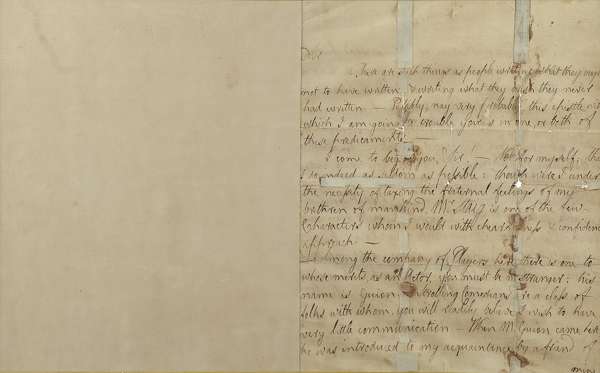 Sir
There are such things as people writing what they ought
not to have written, & writing what they wish they never
had written — Possibly, nay very probably this epistle with
which I am going to trouble you is in one, or both of
these predicaments —
I come to beg of you, Sir! — Not for myself; that
I do indeed as seldom as possible: though were I under
the necessity of taxing the fraternal feelings of my
brethren of mankind Mr is one of the few
Characters whom I would with chearfulness & confidence
approach —
Among the company of Players here, there is one to
whose merits, as an Actor, you must be no stranger: his
name is Guion. Strolling Comedians are a class of
folks with whom, you will easily believe I wish to have
very little communication — When Mr Guion came here
he was introduced to my acquaintance by a friend of
mine